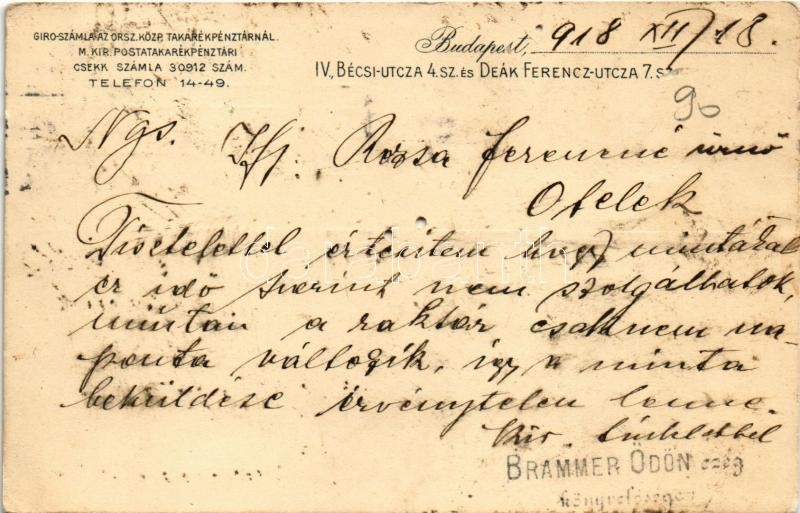 GIRO-SZÁMLA: AZ ORSZ. KÖZP. TAKARÉKPÉNZTÁRNÁL.
M. KIR. POSTATAKARÉKPÉNZTÁRI
CSEKK SZÁMLA 30912 SZÁM.
TELEFON 14-49.
Budapest, 918 XII/18.
IV., BÉCSI-UTCZA 4. SZ. ÉS DEÁK FERENCZ-UTCZA 7. S
Ngs. Ifj. Rózsa Ferencné úrnő
Ótelek
Tisztelettel értesitem hogy mintákal
ez idő szerint nem szolgálhatok,
miután a raktár csaknem na-
ponta változik, igy a minta
beküldése érvénytelen lenne.
Kiv. tisztelettel
BRAMMER ÖDÖN czég
könyvelősége
darabanth